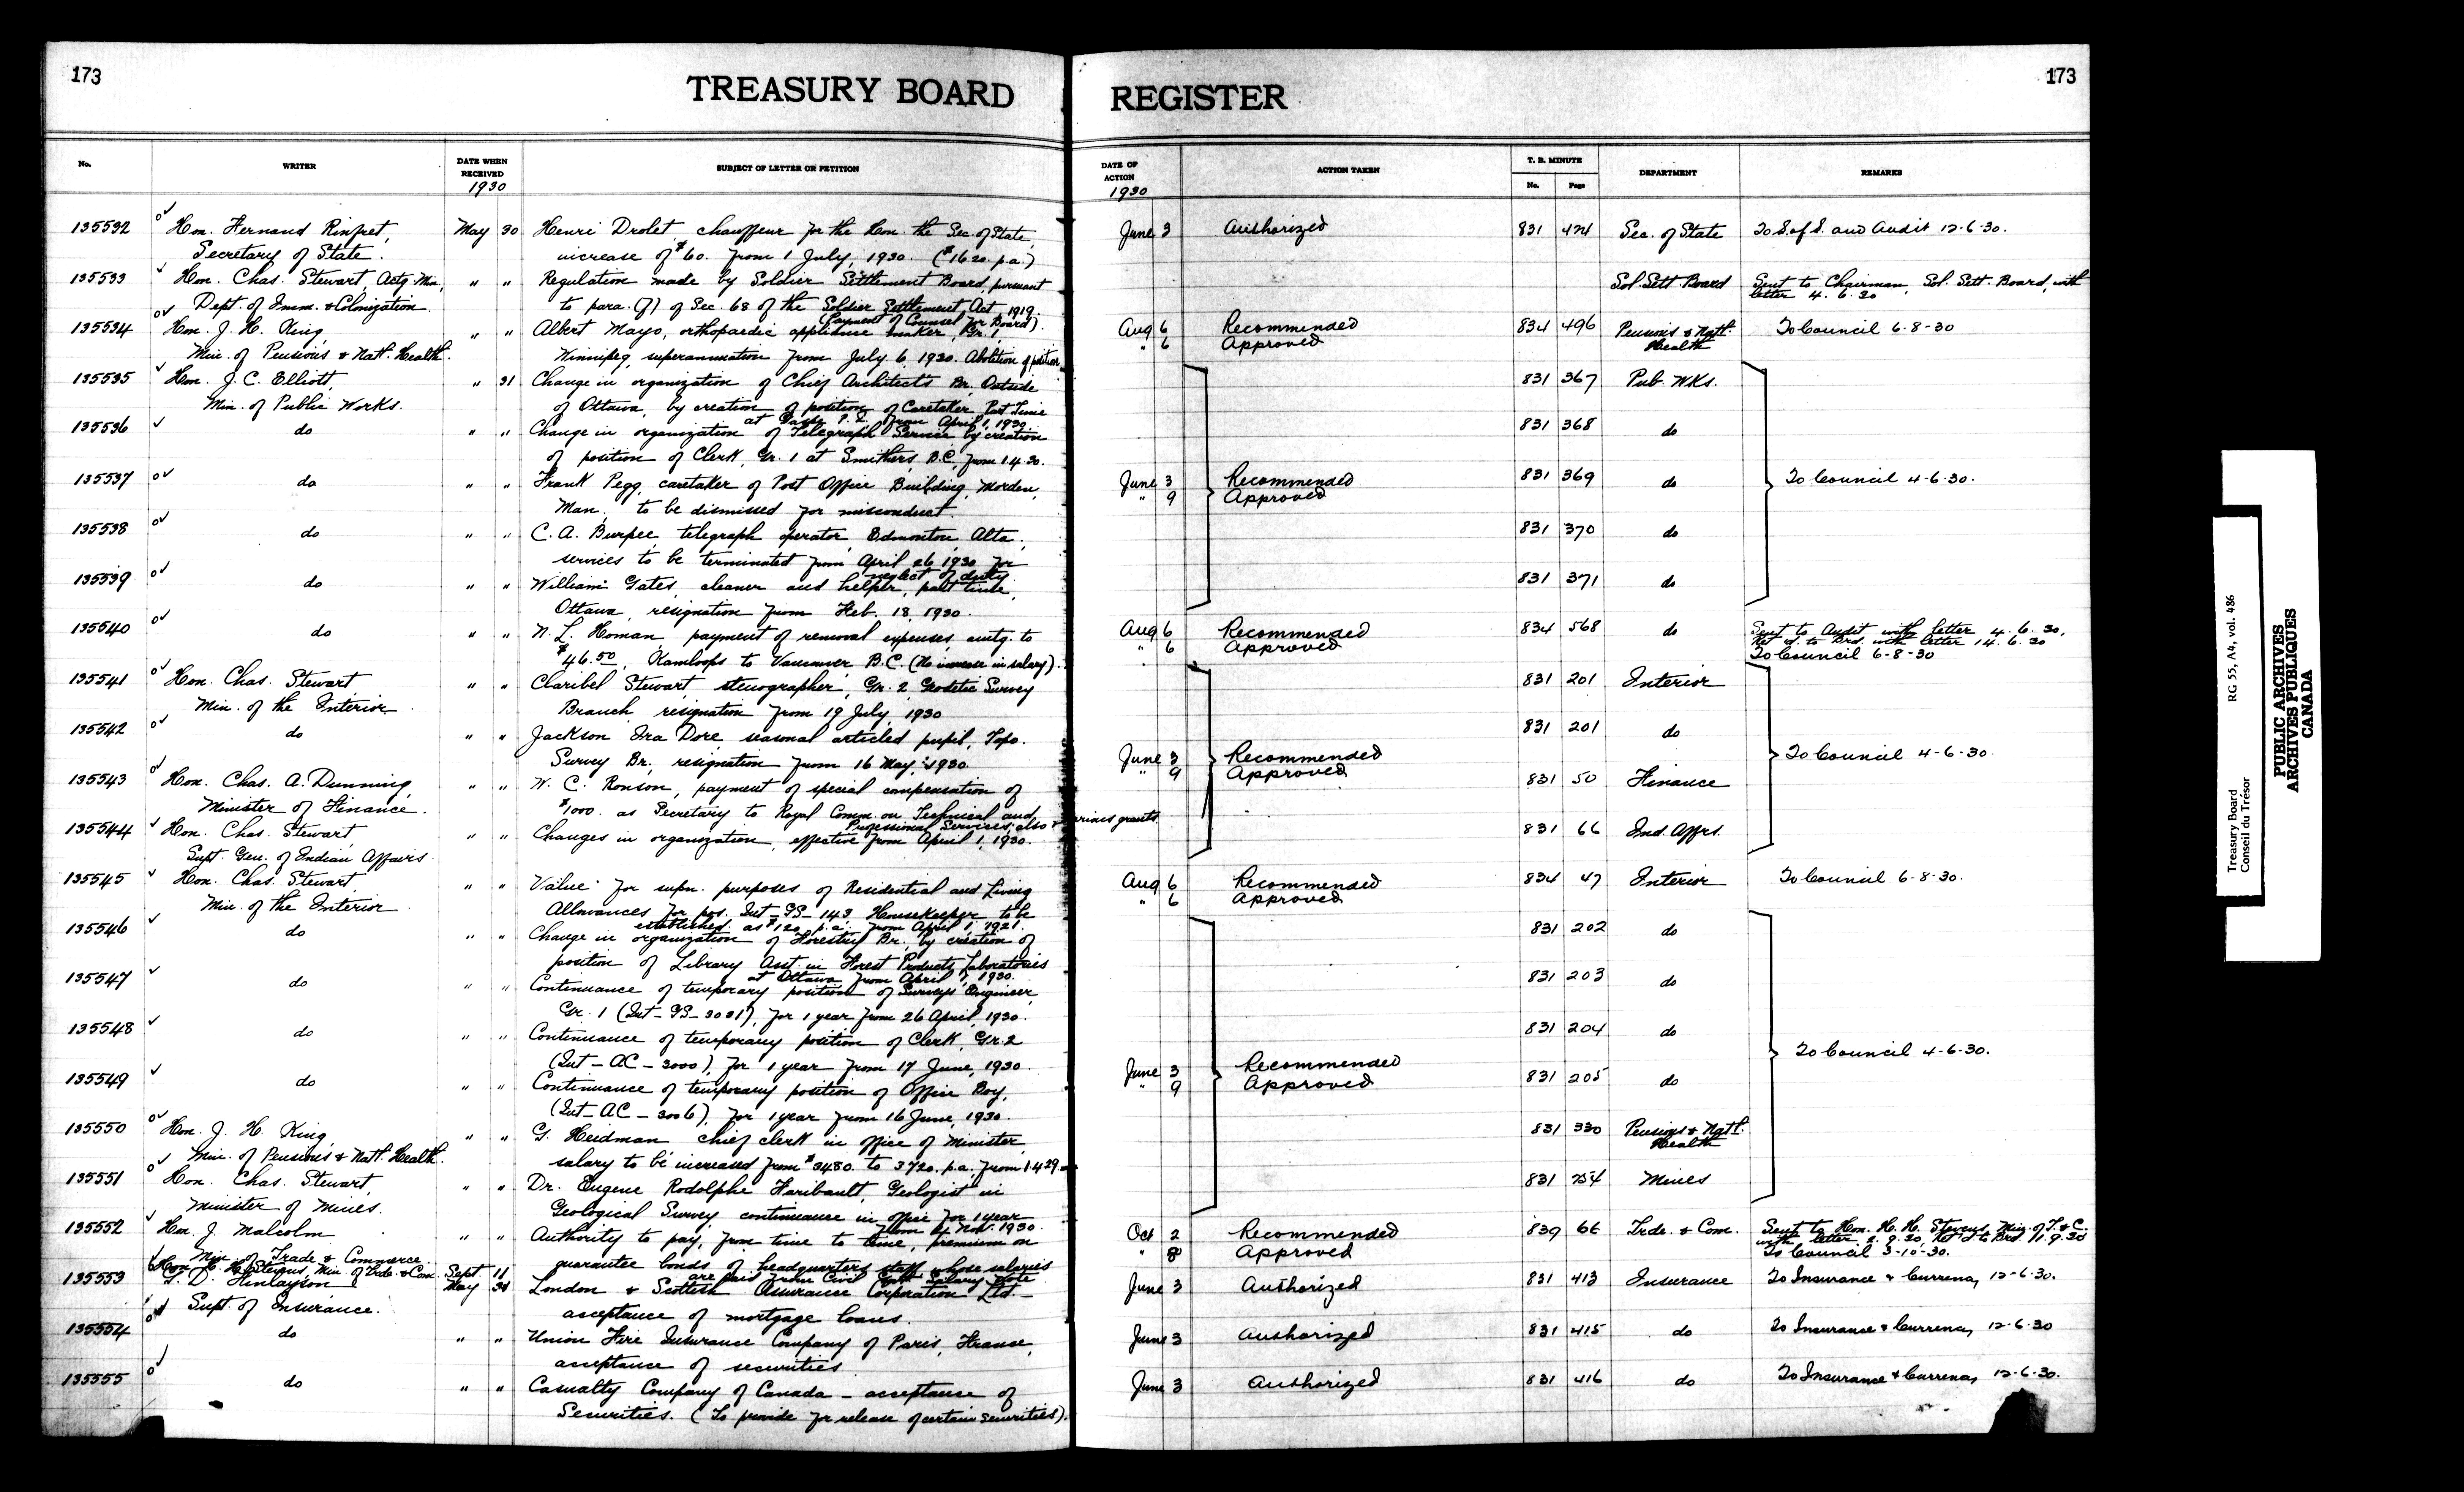 173
TREASURY BOARD
No.
WRITER
DATE WHEN RECEIVED
1930
SUBJECT OF LETTER OR PETITION
135532 Hon. Fernand Rinfret, May 30 Henri Drolet, chauffeur for the Hon. the Sec. of State,
Secretary of State. increase of $60. from 1 July, 1930. ($1620. p.a.)
135533 Hon. Chas. Stewart, Actg. Min., " " Regulation made by Soldier Settlement Board, pursuant
Dept. of Imm. & Colonization. to para. (f) of Sec. 68 of the Soldier Settlement Act 1919.
(Payment of Counsel for Board).
135534 Hon. J. H. King, " " Albert Mayo, orthopaedic appliance maker, Gr. 1,
Min. of Pensions & Natl. Health. Winnipeg, superannuation from July 6, 1930. Abolition of position
135535 Hon. J. C. Elliott, " 31 Change in organization of Chief Architect's Br. Outside
Min. of Public Works. of Ottawa, by creation of position of Caretaker Part Time
at P.Q. from April 1, 1930.
135536 do " " Change in organization of Telegraph Service by creation
of position of Clerk, Gr. 1 at Smithers, B.C. from 1.4.30.
135537 do " " Frank Pegg, caretaker of Post Office Building, Morden,
Man. to be dismissed for misconduct.
135538 do " " C. A. Burpee, telegraph operator, Edmonton, Alta,
services to be terminated from April 26 1930 for
neglect of duty.
135539 do " " William Gates, cleaner and helper, part time,
Ottawa, resignation from Feb. 18, 1930.
135540 do " " N. L. Homan, payment of removal expenses, amtg. to
$46.50, Kamloops to Vancouver, B.C. (No increase in salary).
135541 Hon. Chas. Stewart, " " Claribel Stewart, stenographer, Gr. 2 Geodetic Survey
Min. of the Interior Branch, resignation from 19 July, 1930
135542 do " " Jackson Ira Dore, seasonal articled pupil, Topo.
Survey Br., resignation from 16 May, 1930.
135543 Hon. Chas. A. Dunning, " " W. C. Ronson, payment of special compensation of
Minister of Finance. $1000. as Secretary to Royal Comm. on Technical and
Professional Services, also various grants.
135544 Hon. Chas. Stewart, " " Changes in organization, effective from April 1, 1930.
Supt. Gen. of Indian Affairs
135545 Hon. Chas. Stewart, " " Value for supn. purposes of Residential and Living
Min. of the Interior Allowances for pos. Int-GS-143 Housekeeper to be
established as $120 p.a. from April 1, 1921.
135546 do " " Change in organization of Forestry Br., by creation of
position of Library Asst. in Forest Products Laboratories
at Ottawa from April 1, 1930.
135547 do " " Continuance of temporary position of Surveys Engineer,
Gr. 1 (Int-GS-3031), for 1 year from 26 April, 1930.
135548 do " " Continuance of temporary position of Clerk, Gr. 2
(Int-AC-3000), for 1 year from 17 June, 1930.
135549 do " " Continuance of temporary position of Office Boy,
(Int-AC-3006), for 1 year from 16 June, 1930.
135550 Hon. J. H. King, " " G. Heidman chief clerk in office of Minister,
Min. of Pensions & Natl. Health. salary to be increased from $3480. to 3720. p.a. from 1.4.29.
135551 Hon. Chas. Stewart, " " Dr. Eugene Rodolphe Faribault, Geologist in
Minister of Mines. Geological Survey, continuance in office for 1 year
from Nov. 1930.
135552 Hon. J. Malcolm " " Authority to pay, from time to time, premium on
Min. of Trade & Commerce guarantee bonds of headquarters staff whose salaries
Hon. H. H. Stevens, Min. of Trde. & Com. Sept 11 are paid from Civil Salary Vote
135553 G. D. Finlayson May 30 London & Scottish Assurance Corporation Ltd.-
Supt. of Insurance. acceptance of mortgage loans.
135554 do " " Union Fire Insurance Company of Paris, France,
acceptance of securities
135555 do " " Casualty Company of Canada - acceptance of
Securities. (To provide for release of certain securities).
REGISTER
173
DATE OF ACTION
1930
ACTION TAKEN
T. B. MINUTE
No. Page
DEPARTMENT
REMARKS
June 3 Authorized 831 424 Sec. of State To S. of S. and Audit 12-6-30.
Sol. Sett. Board Sent to Chairman, Sol. Sett. Board, with
letter 4.6.30
Aug 6 Recommended 834 496 Pensions & Natl. Health To Council 6-8-30
" 6 Approved
831 367 Pub. Wks.
831 368 do
June 3 Recommended 831 369 do To Council 4-6-30.
" 9 Approved
831 370 do
831 371 do
Aug 6 Recommended 834 568 do Sent to Audit with letter 4.6.30,
" 6 Approved Ret'd. to Brd. with letter 14.6.30
To Council 6-8-30
831 201 Interior
831 201 do
June 3 Recommended To Council 4-6-30.
" 9 Approved
831 50 Finance
831 66 Ind. Affrs.
Aug 6 Recommended 834 47 Interior To Council 6-8-30.
" 6 Approved
831 202 do
831 203 do
831 204 do
June 3 Recommended To Council 4-6-30.
" 9 Approved
831 205 do
831 330 Pensions & Natl. Health
831 254 Mines
Oct 2 Recommended 839 66 Trde. & Com. Sent to Hon. H. H. Stevens, Min. of T. & C.
" 8 Approved with letter 2.9.30, Ret'd to Brd. 11.9.30
To Council 3-10-30.
June 3 Authorized 831 413 Insurance To Insurance & Currency 12-6-30.
June 3 Authorized 831 415 do To Insurance & Currency 12-6-30
June 3 Authorized 831 416 do To Insurance & Currency 12-6-30.
Treasury Board RG 55, A4, vol. 486
Conseil du Trésor
PUBLIC ARCHIVES
ARCHIVES PUBLIQUES
CANADA